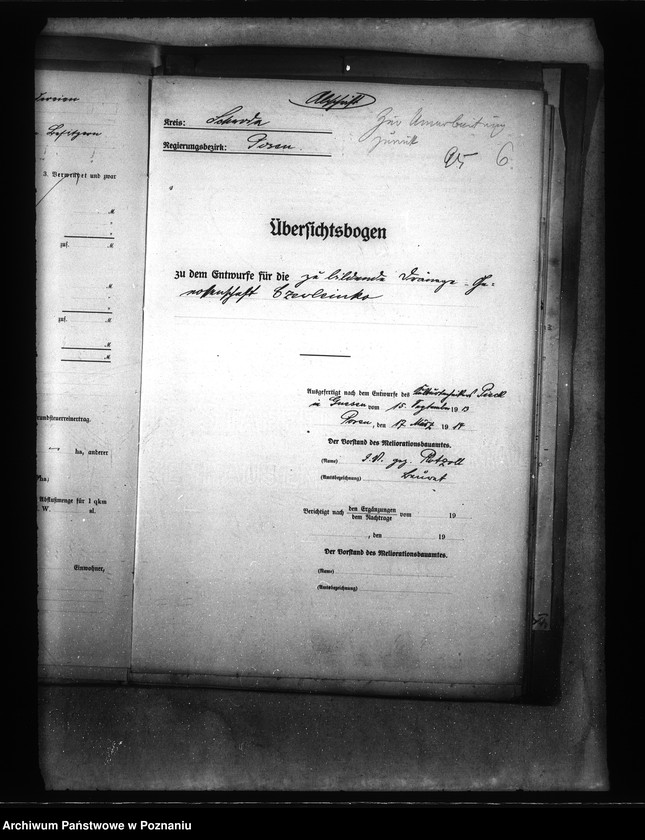 Besitzern
3. Verwertet und zwar
ℳ
"
"
zus. ℳ
ℳ
"
"
zus. ℳ
ℳ
ℳ
rundsteuerreinertrag.
ha, anderer
Abflußmenge für 1 qkm
W. sl.
Einwohner,
Abschrift
Kreis: Schroda
Regierungsbezirk: Posen.
Zur Umarbeitung
zurück
6
Übersichtsbogen
zu dem Entwurfe für die zu bildende Dränage-Ge-
nossenschaft Czerleinko
Ausgefertigt nach dem Entwurfe des Kulturtechnikers Pieck
in Gnesen vom 15. September 1913
Posen, den 17. März 1914
Der Vorstand des Meliorationsbauamtes.
(Name) I.V. gez. Rotzoll
(Amtsbezeichnung) Baurat
Berichtigt nach den Ergänzungen vom 19
dem Nachtrage
, den 19
Der Vorstand des Meliorationsbauamtes.
(Name)
(Amtsbezeichnung)
Archiwum Państwowe w Poznaniu